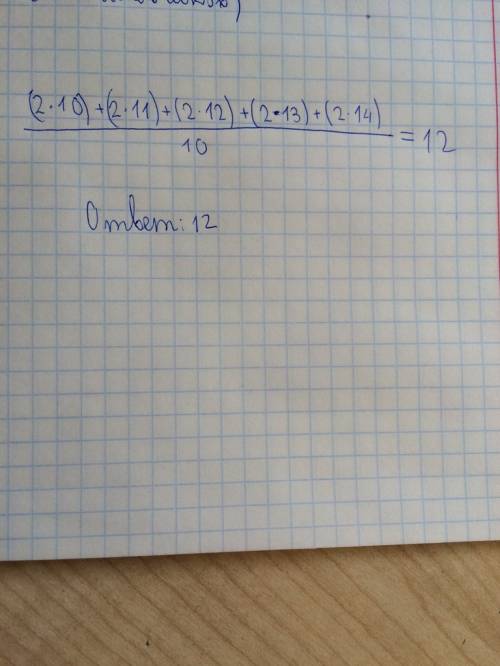 (2·10)+(2·11)+(2·12)+(2·13)+(2·14)
10
=12
Ответ: 12